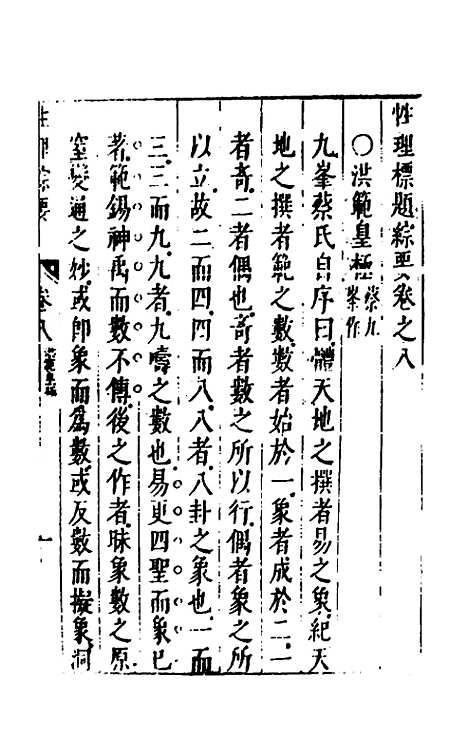 性理標題綜要卷之八
○洪範皇極 蔡九峯作
九峯蔡氏自序曰體天地之撰者易之象紀天
地之撰者範之數數者始於一象者成於二一
者奇二者偶也奇者數之所以行偶者象之所
以立故二而四四而八八者八卦之象也一而
三三而九九者九疇之數也易更四聖而象已
著範錫神禹而數不傳後之作者昧象數之原
窒變通之妙或即象而爲數或反數而擬象洞
性理綜要
卷八
洪範皇極
一